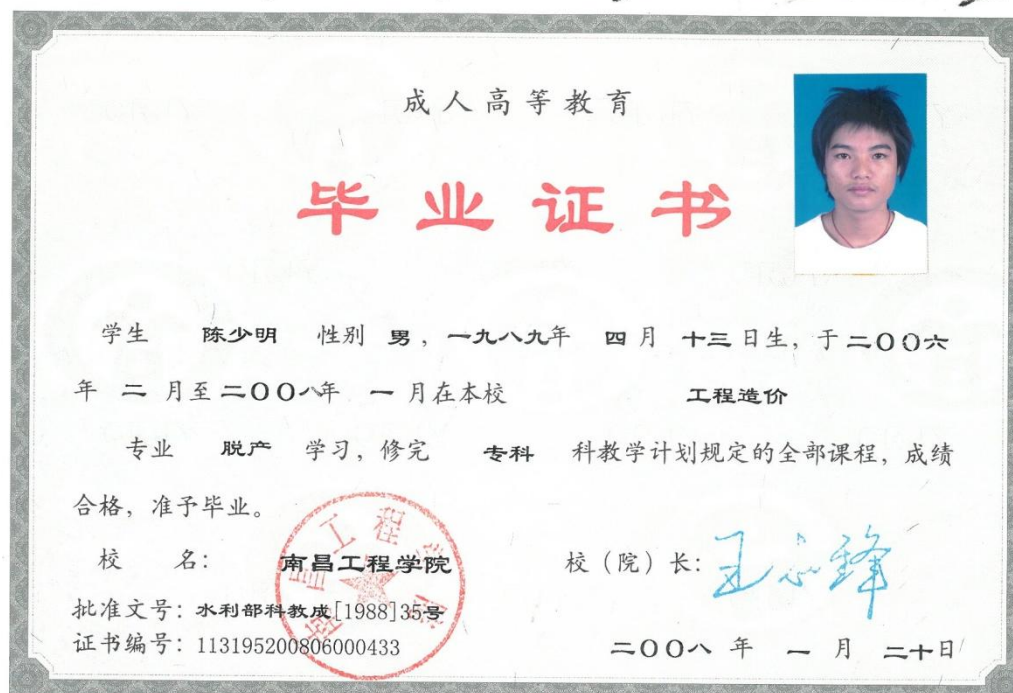 成人高等教育
毕业证书
学生 陈少明 性别 男，一九八九年 四月 十三日生，于二〇〇六
年 二 月至二〇〇八年 一 月在本校 工程造价
专业 脱产 学习，修完 专科 科教学计划规定的全部课程，成绩
合格，准予毕业。
校 名： 南昌工程学院
校（院）长：王志锋
批准文号：水利部科教成[1988]35号
证书编号：113195200806000433
二〇〇八 年 一 月 二十日
南昌工程学院